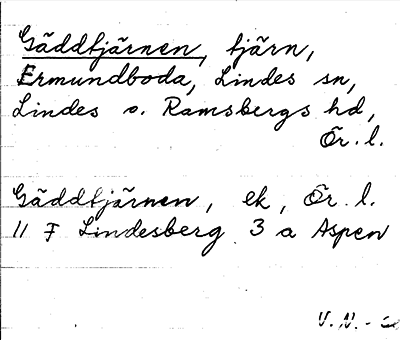 Gäddtjärnen, tjärn,
Ermundboda, Lindes sn,
Lindes o. Ramsbergs hd,
Ör. l.
Gäddtjärnen, ek, Ör. l.
11 F Lindesberg 3 a Aspen
V. N. -